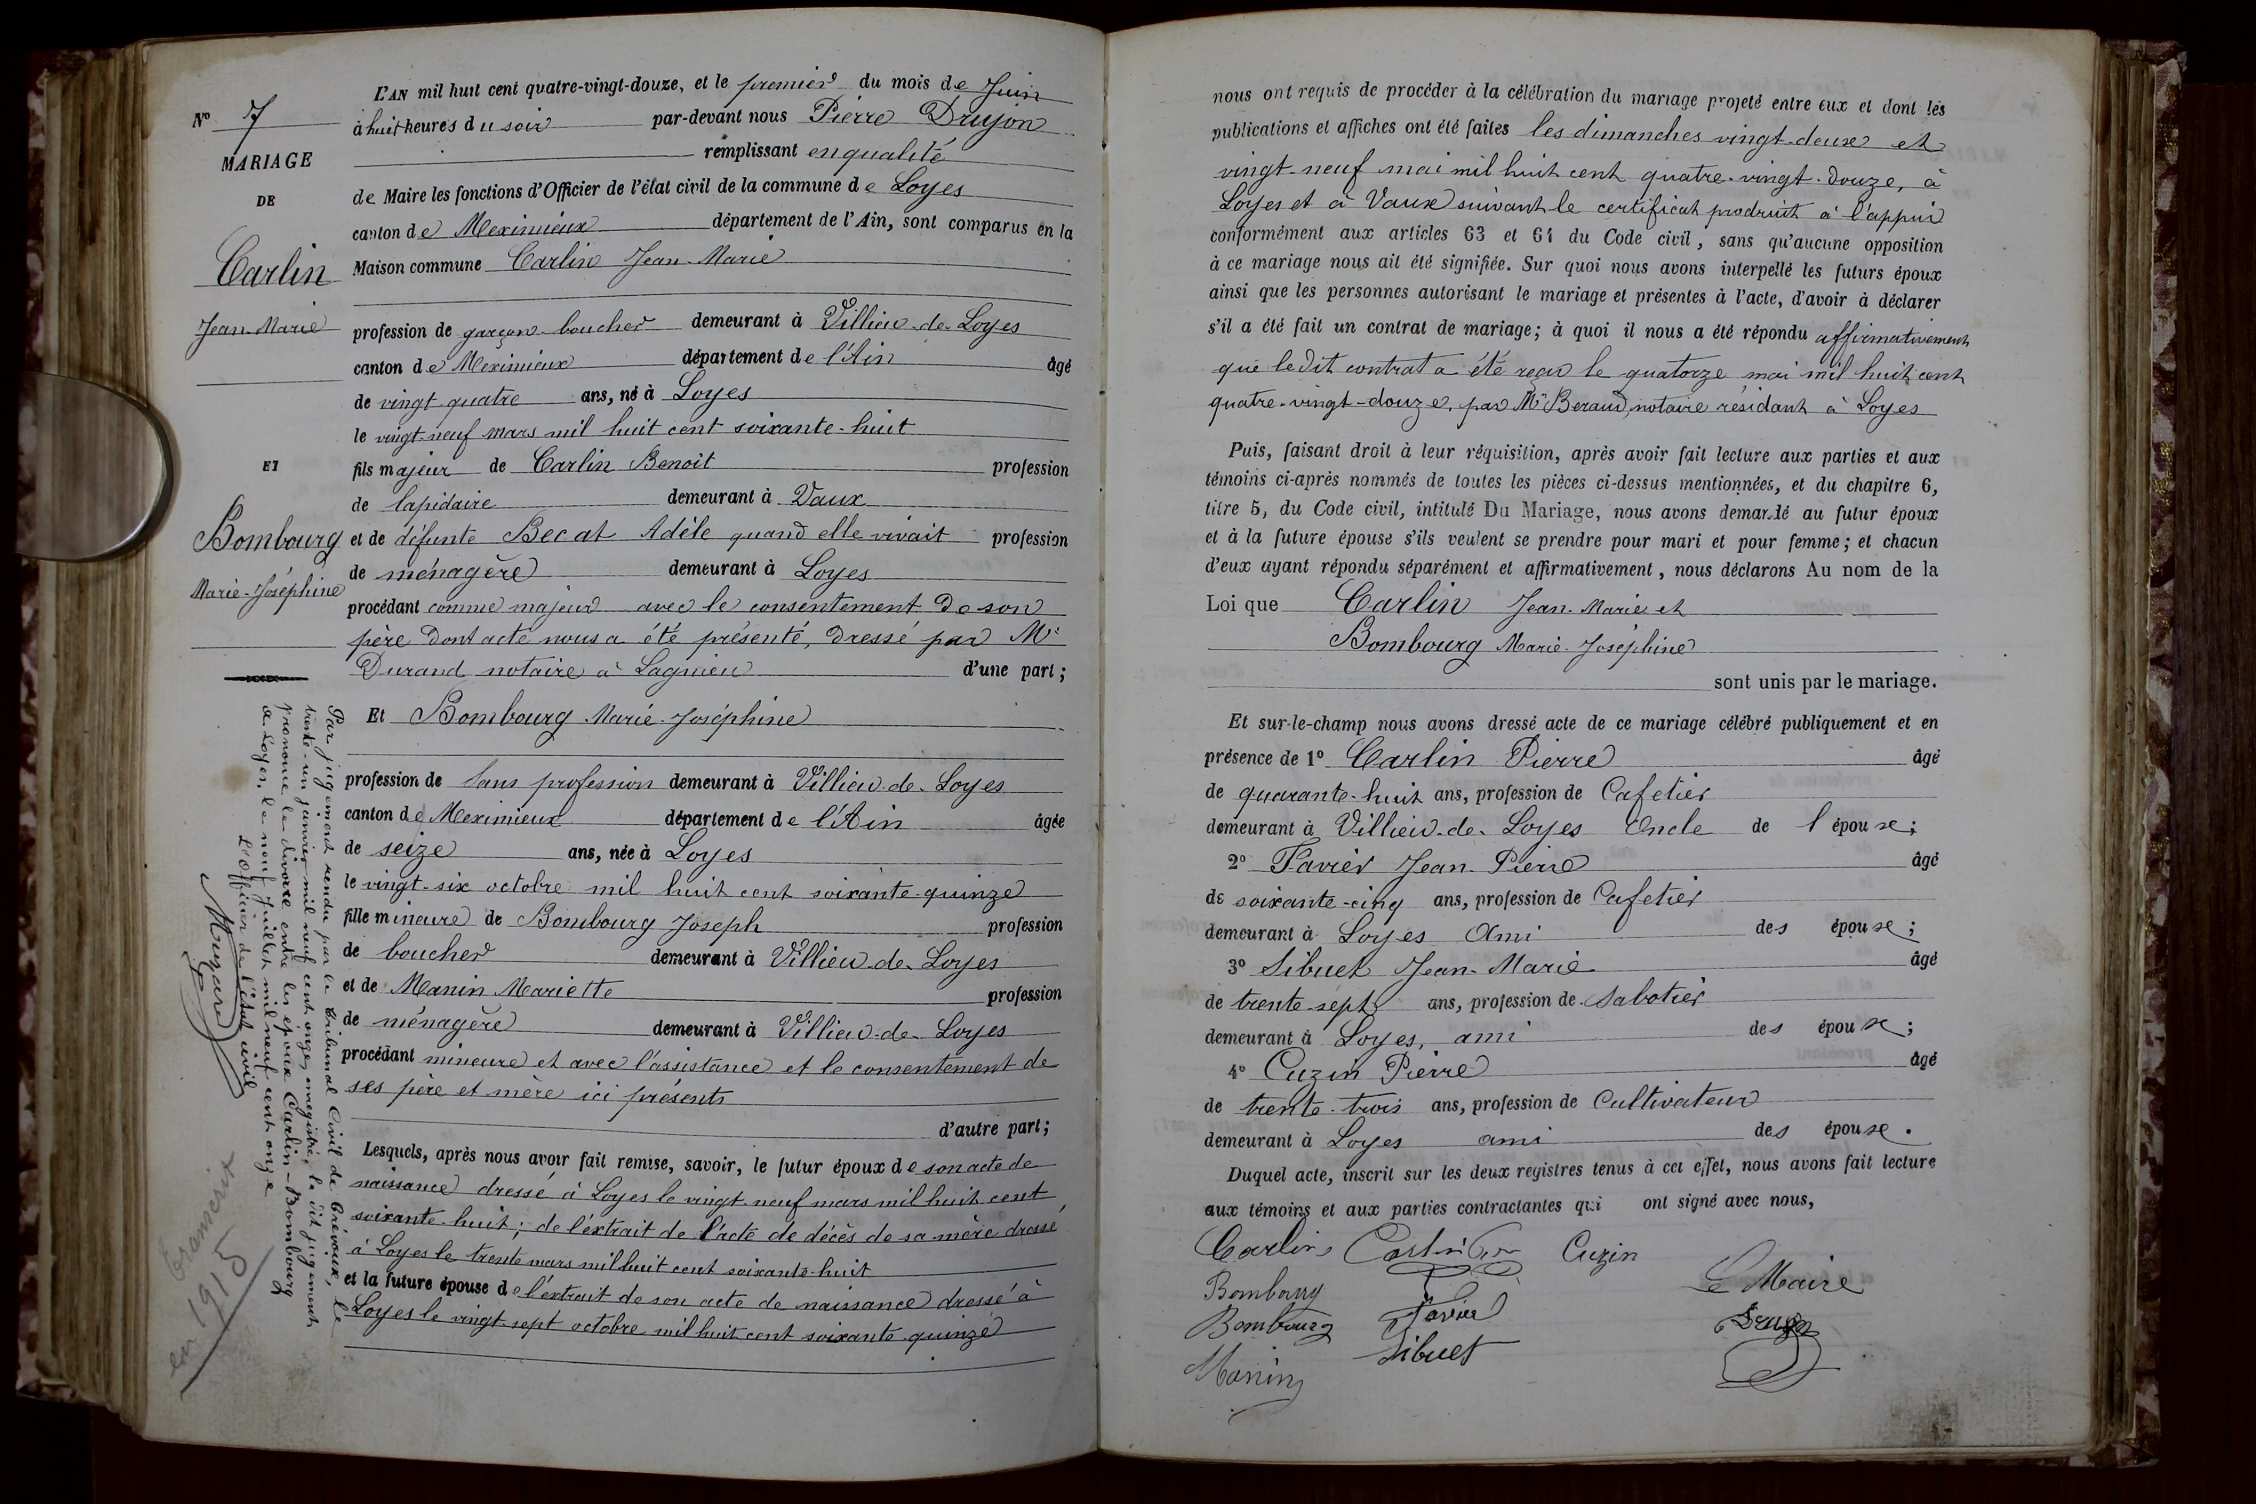 L'AN mil huit cent quatre-vingt-douze, et le premier du mois de Juin
à huit heures du soir par-devant nous Pierre Drujon
remplissant en qualité
de Maire les fonctions d'Officier de l'état civil de la commune de Loyes
canton de Meximieux département de l'Ain, sont comparus en la
Maison commune Carlin Jean-Marie
profession de garçon-boucher demeurant à Villieu-de-Loyes
canton de Meximieux département de l'Ain âgé
de vingt-quatre ans, né à Loyes
le vingt-neuf mars mil huit cent soixante-huit
fils majeur de Carlin Benoit profession
de lapidaire demeurant à Vaux
et de défunte Becat Adèle quand elle vivait profession
de ménagère demeurant à Loyes
procédant comme majeur avec le consentement de son
père dont acte nous a été présenté, dressé par Mr
Durand notaire à Lagnieu d'une part;
Et Bombourg Marie-Joséphine
profession de Sans profession demeurant à Villieu-de-Loyes
canton de Meximieux département de l'Ain âgée
de seize ans, née à Loyes
le vingt-six octobre mil huit cent soixante-quinze
fille mineure de Bombourg Joseph profession
de boucher demeurant à Villieu-de-Loyes
et de Manin Mariette profession
de ménagère demeurant à Villieu-de-Loyes
procédant mineure et avec l'assistance et le consentement de
ses père et mère ici présents
d'autre part;
Lesquels, après nous avoir fait remise, savoir, le futur époux de son acte de
naissance dressé à Loyes le vingt-neuf mars mil huit cent
soixante-huit; de l'extrait de l'acte de décès de sa mère dressé
à Loyes le trente mars mil huit cent soixante-huit
et la future épouse de l'extrait de son acte de naissance dressé à
Loyes le vingt-sept octobre mil huit cent soixante-quinze
No 7
MARIAGE
DE
Carlin
Jean-Marie
ET
Bombourg
Marie-Joséphine
Par jugement rendu par le tribunal Civil de Trévoux, le
trente-un janvier mil neuf cent onze, enregistré, le dit jugement
prononce le divorce entre les époux Carlin-Bombourg
a Loyes, le neuf Juillet mil neuf cent onze
L'Officier de l'état civil
transcrit
en 1915
nous ont requis de procéder à la célébration du mariage projeté entre eux et dont les
publications et affiches ont été faites les dimanches vingt-deux et
vingt-neuf mai mil huit cent quatre-vingt-douze, à
Loyes et à Vaux suivant le certificat produit à l'appui
conformément aux articles 63 et 64 du Code civil, sans qu'aucune opposition
à ce mariage nous ait été signifiée. Sur quoi nous avons interpellé les futurs époux
ainsi que les personnes autorisant le mariage et présentes à l'acte, d'avoir à déclarer
s'il a été fait un contrat de mariage; à quoi il nous a été répondu affirmativement
que le dit contrat a été reçu le quatorze mai mil huit cent
quatre-vingt-douze, par Mr Beraud, notaire résidant à Loyes
Puis, faisant droit à leur réquisition, après avoir fait lecture aux parties et aux
témoins ci-après nommés de toutes les pièces ci-dessus mentionnées, et du chapitre 6,
titre 5, du Code civil, intitulé Du Mariage, nous avons demandé au futur époux
et à la future épouse s'ils veulent se prendre pour mari et pour femme; et chacun
d'eux ayant répondu séparément et affirmativement, nous déclarons Au nom de la
Loi que Carlin Jean-Marie et
Bombourg Marie-Joséphine
sont unis par le mariage.
Et sur-le-champ nous avons dressé acte de ce mariage célébré publiquement et en
présence de 1o Carlin Pierre âgé
de quarante-huit ans, profession de Cafetier
demeurant à Villieu-de-Loyes Oncle de l épouse;
2o Favier Jean-Pierre âgé
de soixante-cinq ans, profession de Cafetier
demeurant à Loyes Ami des épouse;
3o Sibuet Jean-Marie âgé
de trente-sept ans, profession de Sabotier
demeurant à Loyes, ami des épouse;
4o Cuzin Pierre âgé
de trente-trois ans, profession de Cultivateur
demeurant à Loyes ami des épouse.
Duquel acte, inscrit sur les deux registres tenus à cet effet, nous avons fait lecture
aux témoins et aux parties contractantes qui ont signé avec nous,
Carlin Cuzin
Bombourg Le Maire
Bombourg Favier Drujon
Sibuet
Manin